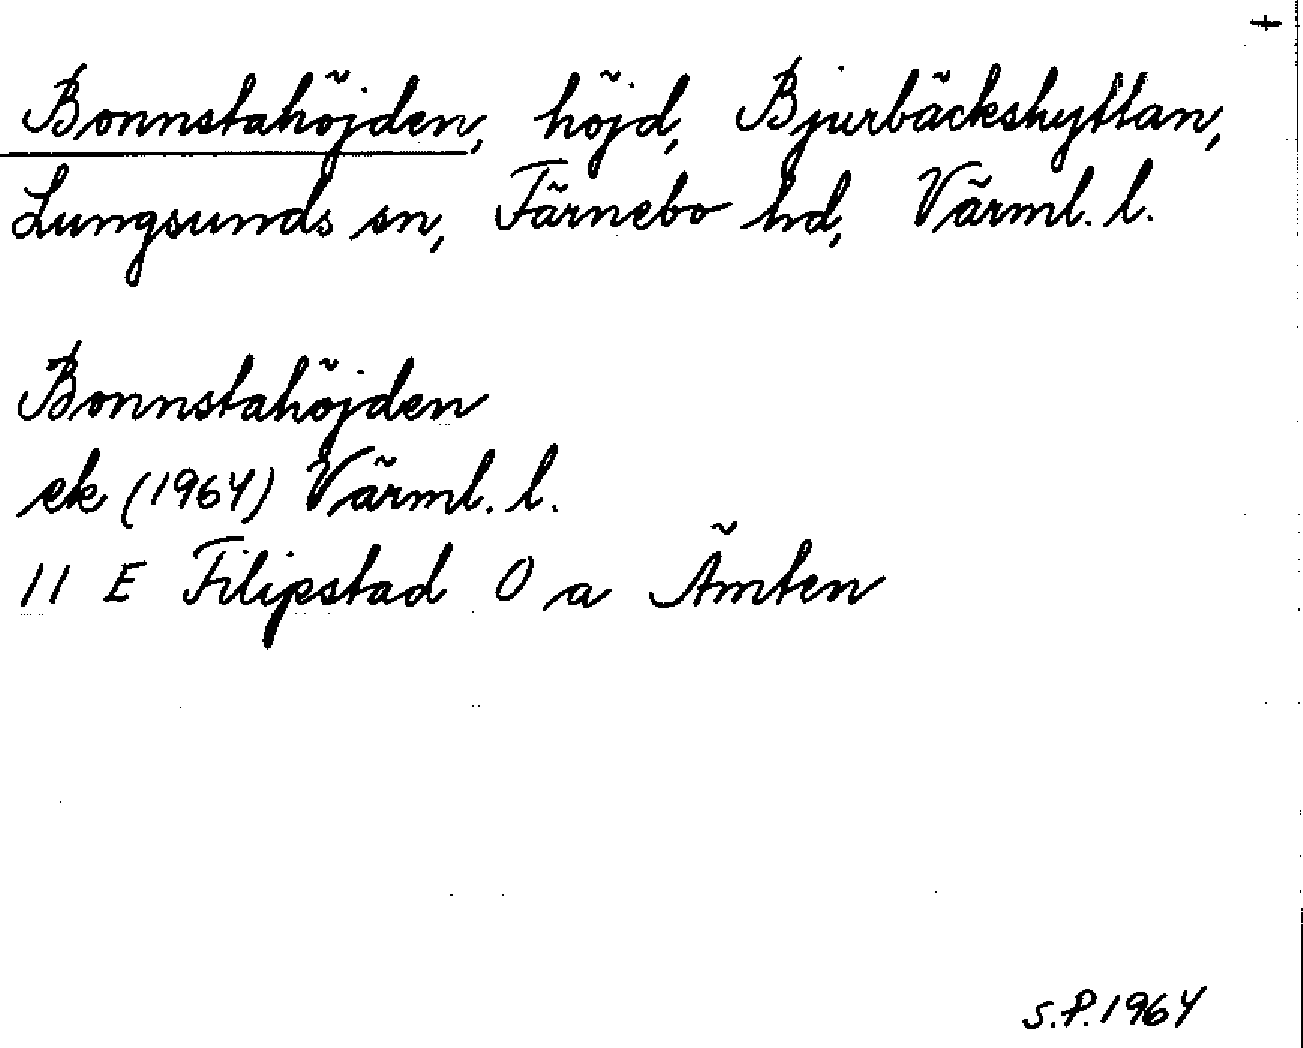 +
Bonnstahöjden, höjd, Bjurbäckshyttan,
Lungsunds sn, Färnebo hd, Värml. l.
Bonnstahöjden
ek (1964) Värml. l.
11 E Filipstad O a Ämten
S.P. 1964